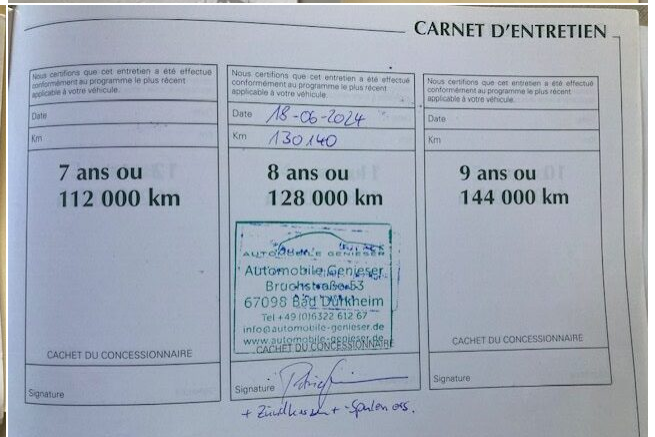 CARNET D'ENTRETIEN
Nous certifions que cet entretien a été effectué
conformément au programme le plus récent
applicable à votre véhicule.
Date
Km
7 ans ou
112 000 km
CACHET DU CONCESSIONNAIRE
Signature
Nous certifions que cet entretien a été effectué
conformément au programme le plus récent
applicable à votre véhicule.
Date 18-06-2024
Km 130140
8 ans ou
128 000 km
AUTOMOBILE GENIESER
Automobile Genieser
Bruchstraße 53
67098 Bad Dürkheim
Tel +49 (0)6322 612 67
info@automobile-genieser.de
www.automobile-genieser.de
CACHET DU CONCESSIONNAIRE
Signature
+ Zündkerzen +
Nous certifions que cet entretien a été effectué
conformément au programme le plus récent
applicable à votre véhicule.
Date
Km
9 ans ou
144 000 km
CACHET DU CONCESSIONNAIRE
Signature